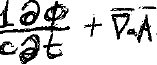 \frac{1}{c}\frac{\partial \phi}{\partial t} + \overline{\nabla} \cdot \overline{A}